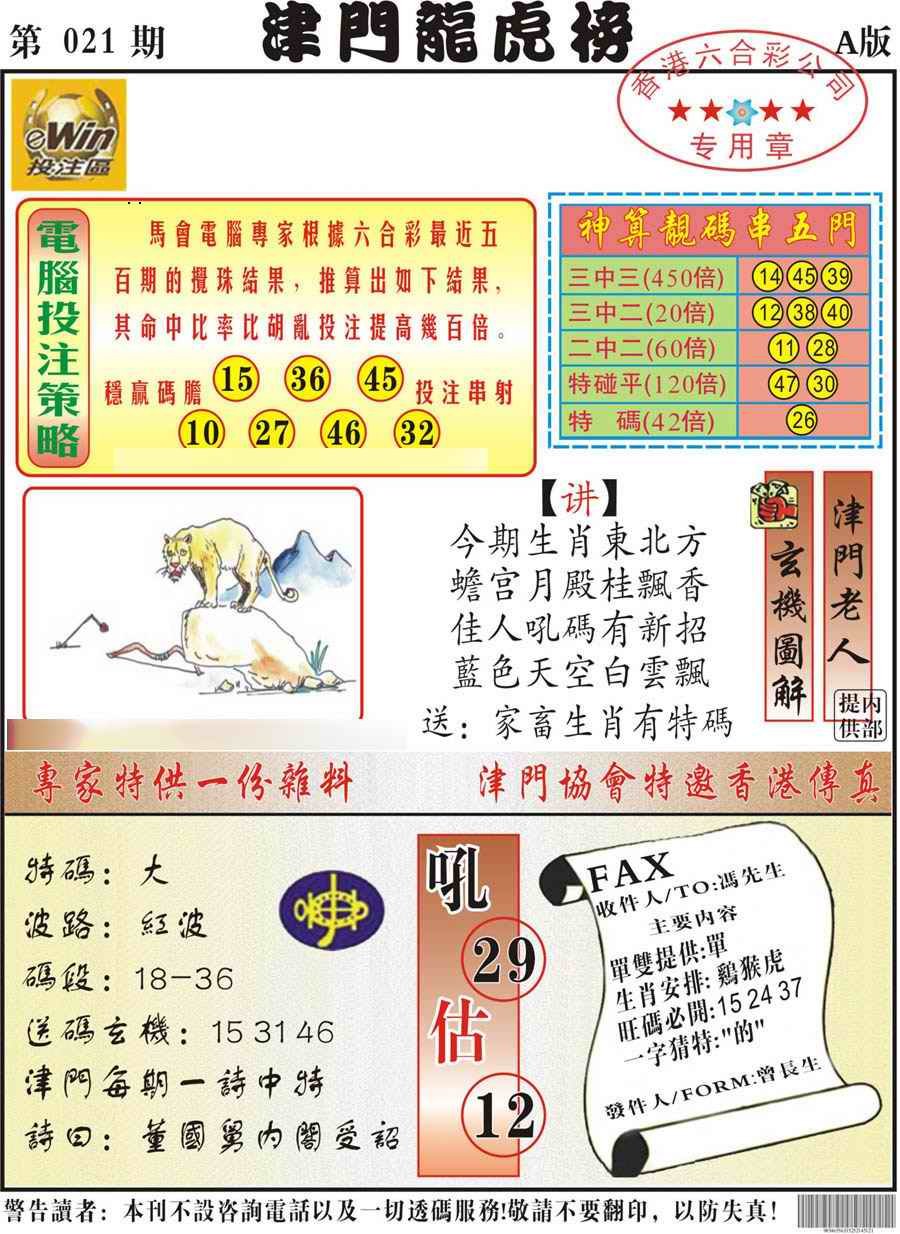 第 021 期
津門龍虎榜
A版
香港六合彩公司
★★★★
专用章
eWin
投注區
電腦投注策略
馬會電腦專家根據六合彩最近五
百期的攪珠結果，推算出如下結果，
其命中比率比胡亂投注提高幾百倍。
穩贏碼膽 15 36 45 投注串射
10 27 46 32
神算靚碼串五門
三中三(450倍) 14 45 39
三中二(20倍) 12 38 40
二中二(60倍) 11 28
特碰平(120倍) 47 30
特 碼(42倍) 26
【讲】
今期生肖東北方
蟾宫月殿桂飄香
佳人吼碼有新招
藍色天空白雲飄
送：家畜生肖有特碼
玄機圖解
津門老人
内部提供
專家特供一份雜料
津門協會特邀香港傳真
特碼：大
波路：紅波
碼段：18-36
送碼玄機：15 31 46
津門每期一詩中特
詩曰：董國舅内閣受詔
吼
29
估
12
FAX
收件人/TO:馮先生
主要内容
單雙提供:單
生肖安排:鷄猴虎
旺碼必開:15 24 37
一字猜特:"的"
發件人/FORM:曾長生
警告讀者：本刊不設咨詢電話以及一切透碼服務!敬請不要翻印，以防失真！